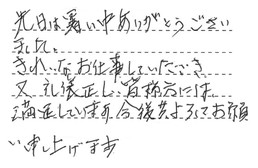 先日は暑い中ありがとうござい
ました。
きれいなお仕事していただき
又、礼儀正しい皆様方には、
満足しています。今後共よろしくお願
い申し上げます